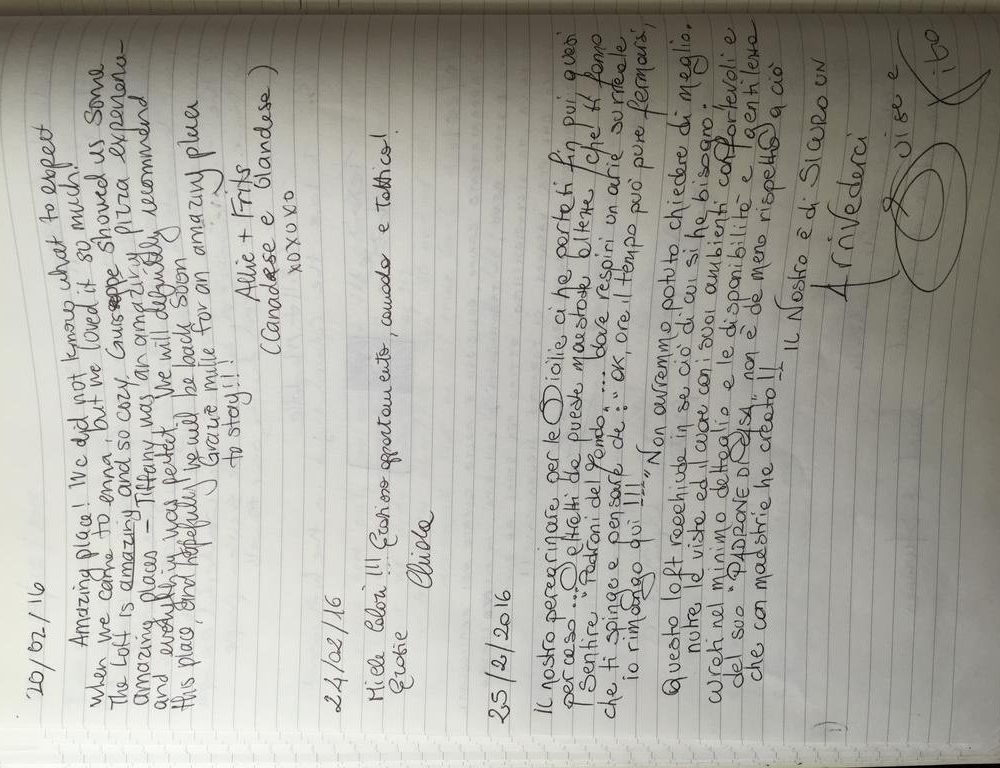 20/02/16
Amazing place! We did not know what to expect
when we came to enna, but we loved it so much!
The loft is amazing and so cozy. Guiseppe showed us some
amazing places – Tiffany was an amazing pizza experience
and everything was perfect. We will definitely recommend
this place, and hopefully we will be back soon
Grazie mille for an amazing place
to stay!!!
Allie + Frits
(Canadese e olandese)
xoxoxo
24/02/16
Mille Colori!!! Grazioso appartamento, comodo e tattico!
Grazie
Chiola
25/2/2016
Il nostro peregrinare per la Sicilia ci ha portati fin qui quasi
per caso... Attratti da queste maestose altezze che ti fanno
sentire "Padroni del Mondo"... dove respiri un'aria surreale
che ti spinge a pensare che: "OK, ora il tempo può pure fermarsi,
io rimango qui!!!" Non avremmo potuto chiedere di meglio.
Questo loft racchiude in se ciò di cui si ha bisogno:
nutre la vista ed il cuore con i suoi ambienti confortevoli e
curati nel minimo dettaglio e la disponibilità e gentilezza
del suo "PADRONE DI CASA" non è da meno rispetto a ciò
che con maestria ha creato!!
Il Nostro è di SICURO UN
Arrivederci